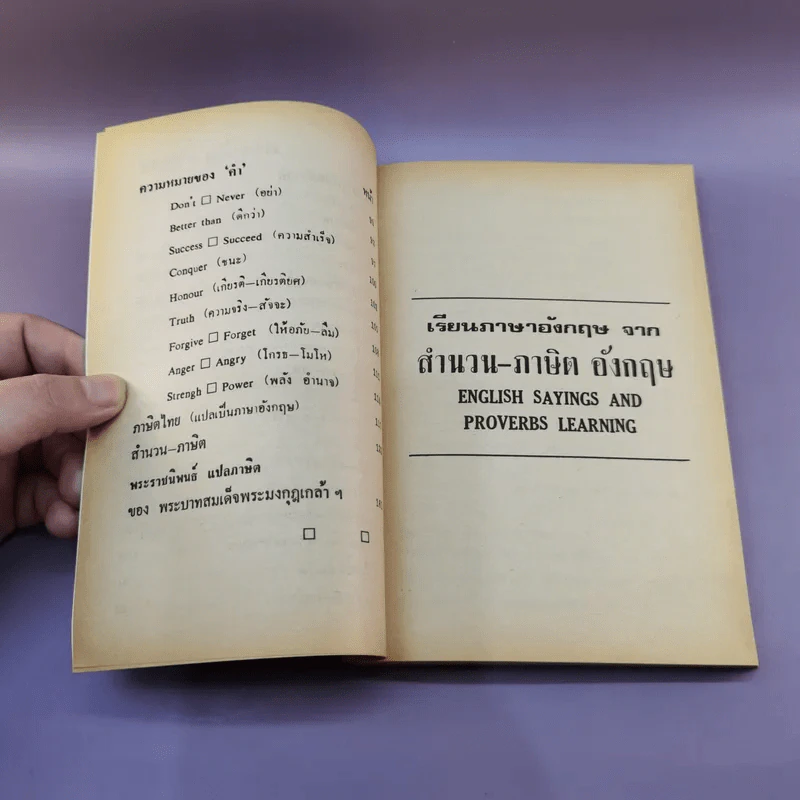 ความหมายของ 'คำ'
หน้า
Don't □ Never (อย่า)
Better than (ดีกว่า)
Success □ Succeed (ความสำเร็จ)
Conquer (ชนะ)
Honour (เกียรติ—เกียรติยศ)
Truth (ความจริง—สัจจะ)
Forgive □ Forget (ให้อภัย—ลืม)
Anger □ Angry (โกรธ—โมโห)
Strengh □ Power (พลัง อำนาจ)
ภาษิตไทย (แปลเป็นภาษาอังกฤษ)
สำนวน—ภาษิต
พระราชนิพนธ์ แปลภาษิต
ของ พระบาทสมเด็จพระมงกุฎเกล้า ฯ
□ □
เรียนภาษาอังกฤษ จาก
สำนวน-ภาษิต อังกฤษ
ENGLISH SAYINGS AND
PROVERBS LEARNING